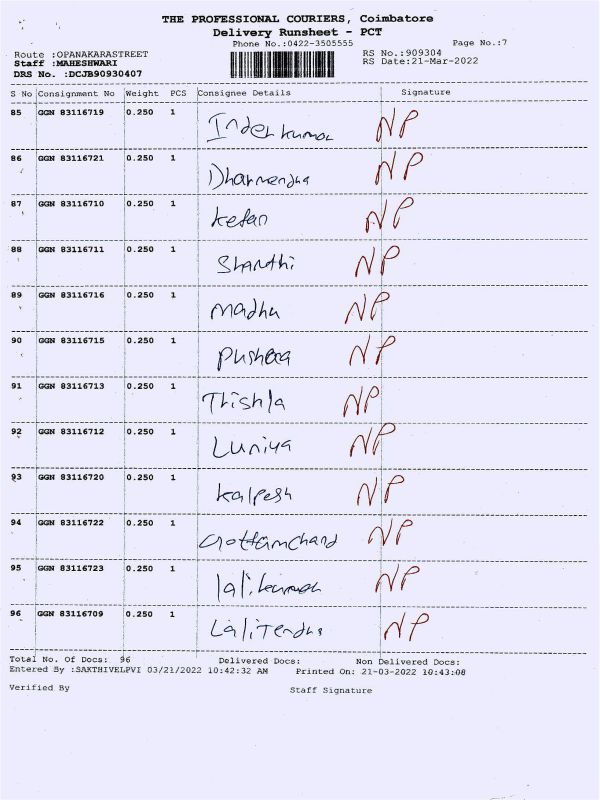 THE PROFESSIONAL COURIERS, Coimbatore
Delivery Runsheet - PCT
Phone No.:0422-3505555 Page No.:7
Route :OPANAKARASTREET RS No.:909304
Staff :MAHESHWARI RS Date:21-Mar-2022
DRS No. :DCJB90930407
S No Consignment No Weight PCS Consignee Details Signature
85 GGN 83116719 0.250 1 Inderkumar NP
86 GGN 83116721 0.250 1 Dharmendha NP
87 GGN 83116710 0.250 1 Ketan NP
88 GGN 83116711 0.250 1 Shanthi NP
89 GGN 83116716 0.250 1 madhu NP
90 GGN 83116715 0.250 1 NP
91 GGN 83116713 0.250 1 Thishla NP
92 GGN 83116712 0.250 1 Luniya NP
93 GGN 83116720 0.250 1 Kalpesh NP
94 GGN 83116722 0.250 1 NP
95 GGN 83116723 0.250 1 NP
96 GGN 83116709 0.250 1 NP
Total No. Of Docs: 96 Delivered Docs: Non Delivered Docs:
Entered By :SAKTHIVELPVI 03/21/2022 10:42:32 AM Printed On: 21-03-2022 10:43:08
Verified By Staff Signature